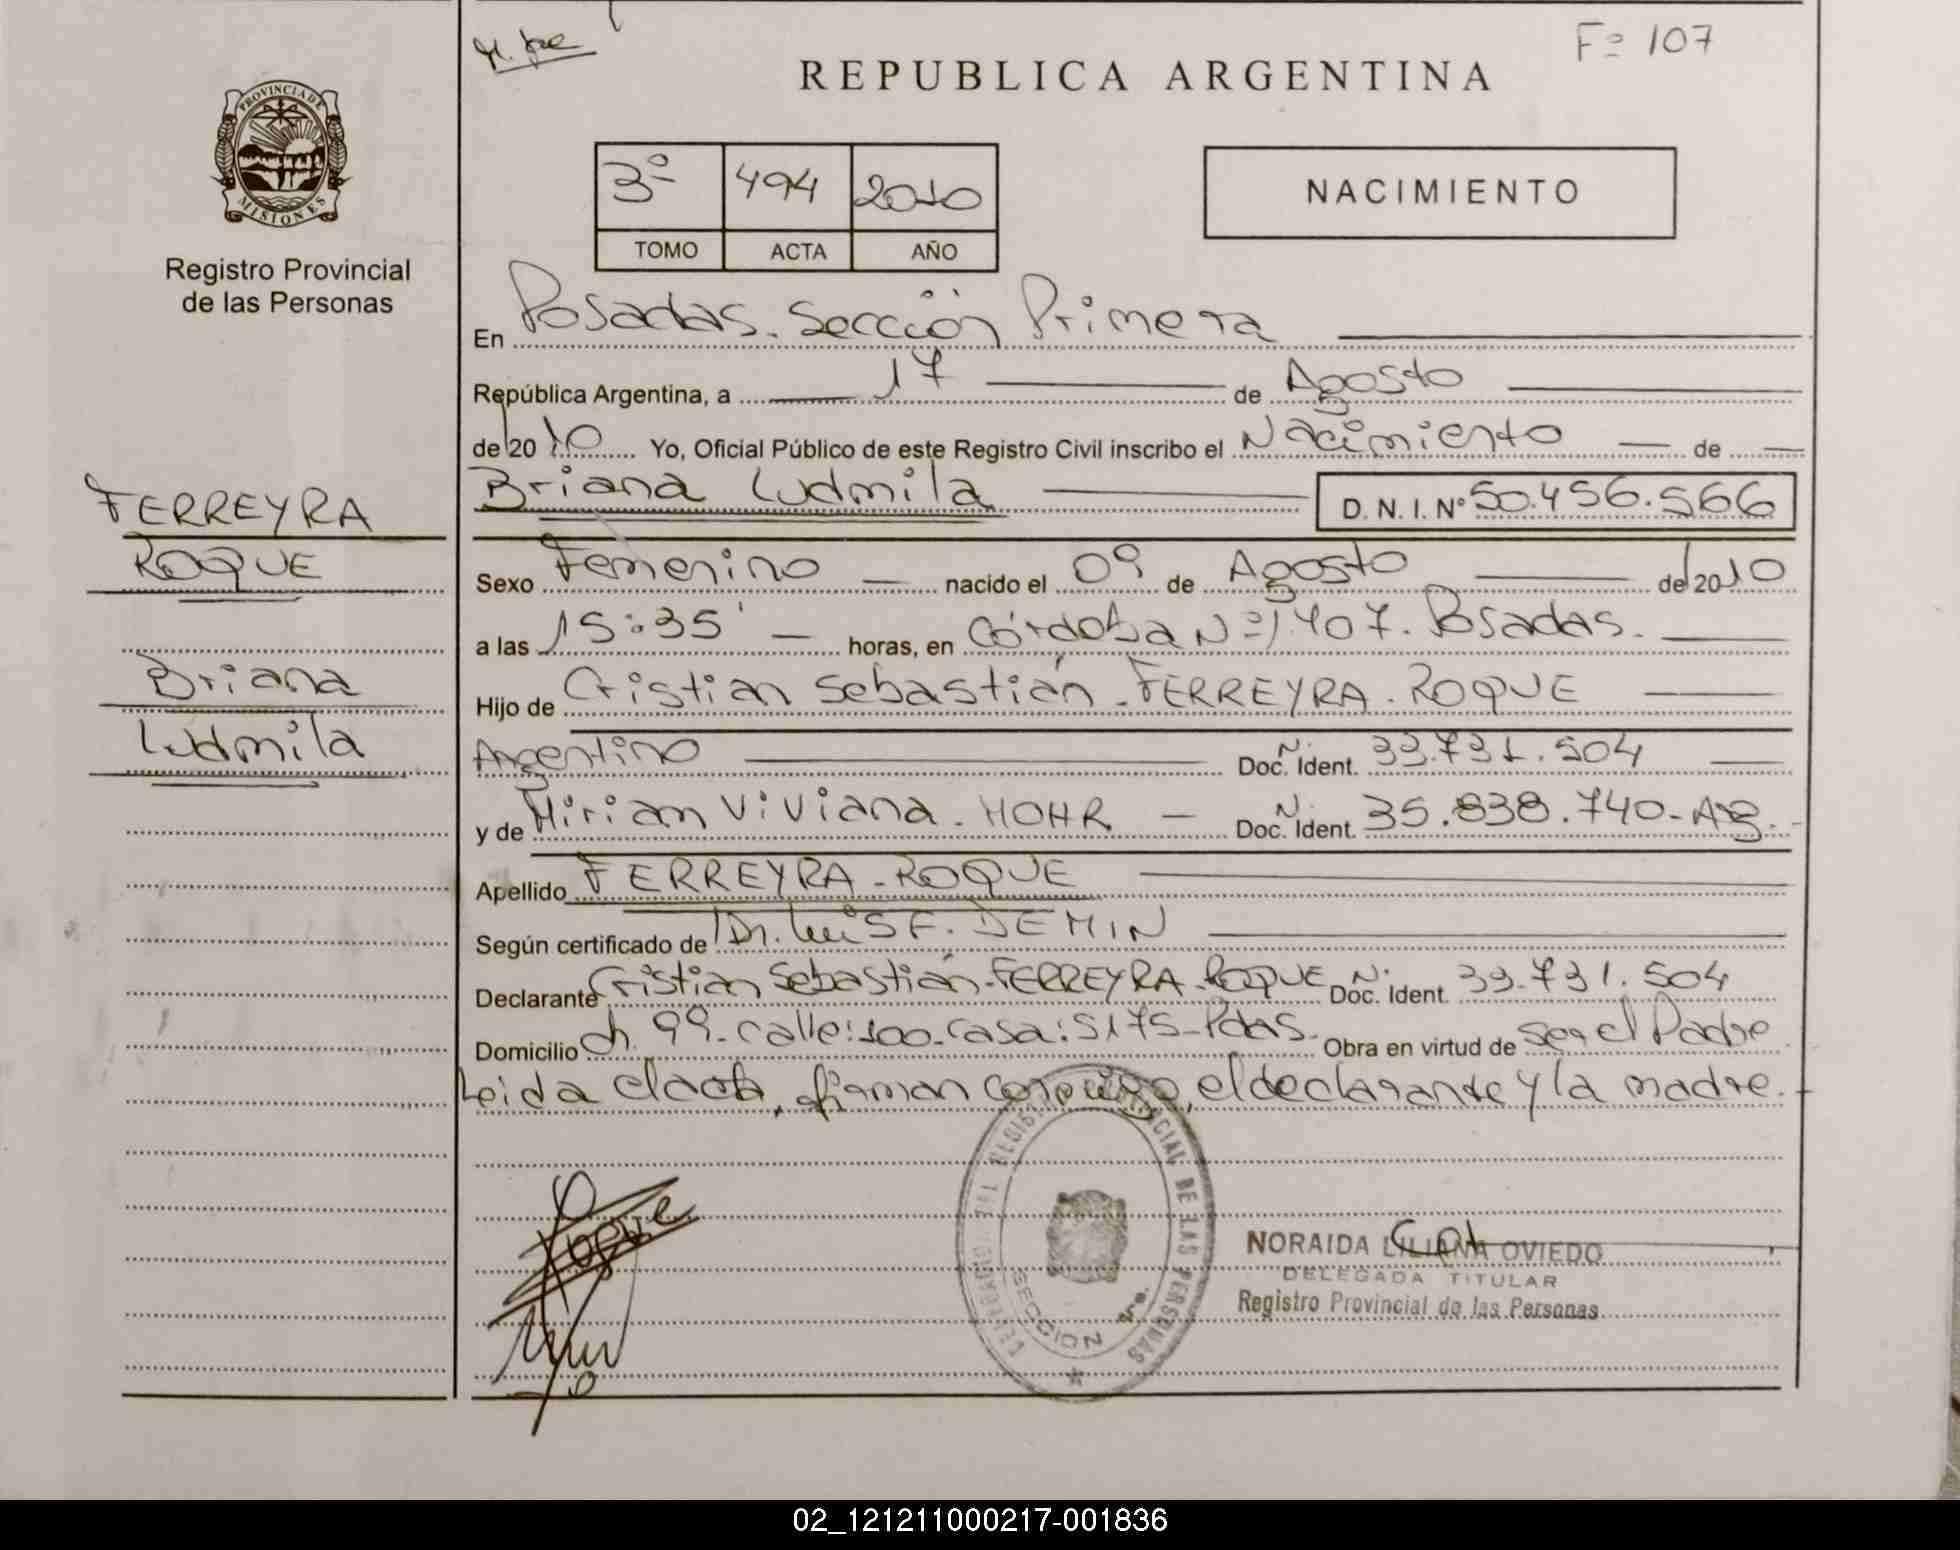 Fº 107
REPUBLICA ARGENTINA
PROVINCIA DE
MISIONES
Registro Provincial
de las Personas
3º 494 2010
TOMO ACTA AÑO
NACIMIENTO
En Posadas. Sección Primera
República Argentina, a 17 de Agosto
de 2010 Yo, Oficial Público de este Registro Civil inscribo el Nacimiento de
Briana Ludmila D. N. I. Nº 50.456.566
FERREYRA
ROQUE
Briana
Ludmila
Sexo Femenino nacido el 09 de Agosto de 2010
a las 15:35' horas, en Córdoba Nº 1.407. Posadas.
Hijo de Cristian Sebastián - FERREYRA - ROQUE
Argentino Doc. Ident. 33.731.504
y de Mirian Viviana - MOHR Doc. Ident. 35.838.740 - Arg.
Apellido FERREYRA - ROQUE
Según certificado de Dr. Luis F. DEMIN
Declarante Cristian Sebastián - FERREYRA - ROQUE Doc. Ident. 33.731.504
Domicilio ch. 99 - calle: 100 - casa: 5175 - Pdas. Obra en virtud de ser el Padre
Leida el acta, firman conmigo, el declarante y la madre.
Roque
DELEGACION DEL REGISTRO PROVINCIAL DE LAS PERSONAS
SECCION 1ra.
NORAIDA LILIANA OVIEDO
DELEGADA TITULAR
Registro Provincial de las Personas
02_121211000217-001836